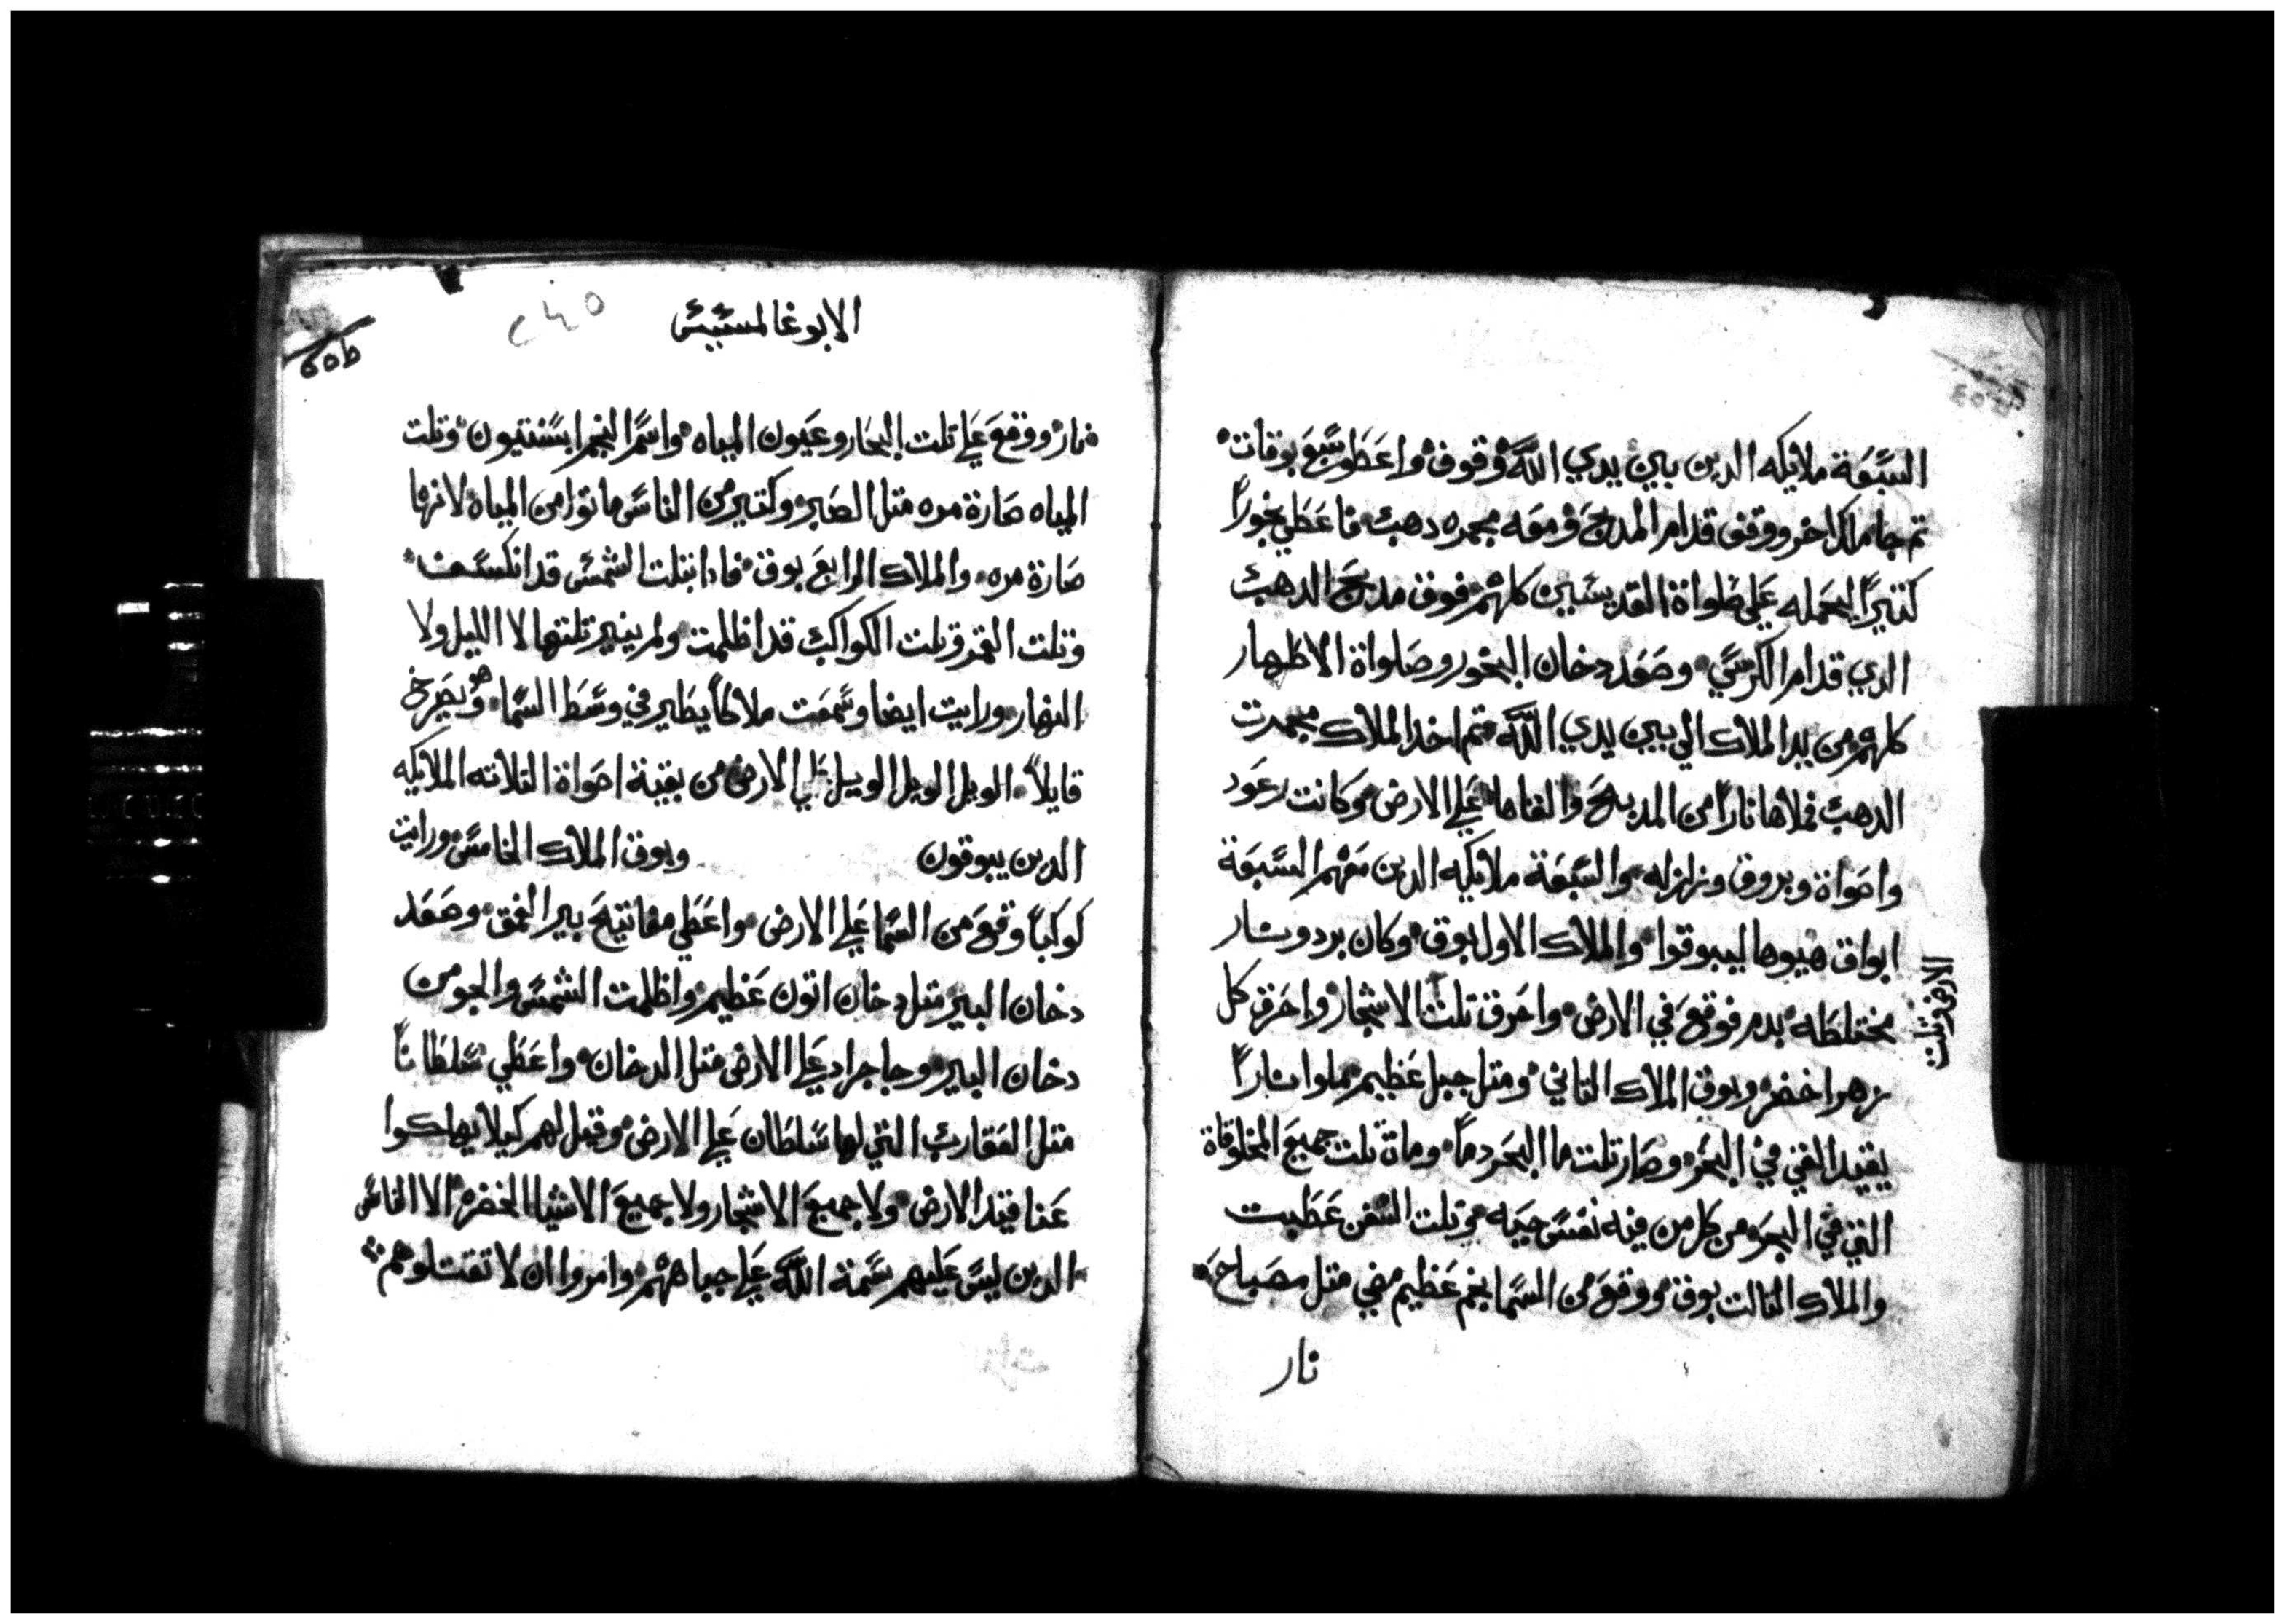 السبعة ملايكه الدين بين يدي الله وقوف واعطو سبع بوقات
تم جا ملاك اخر ووقف قدام المدبح ومعه مجمره دهب فاعطي بخوراً
كتيراً ليجعله علي صلواة القديسين كلهم فوق مدبح الدهب
الدي قدام الكرسي وصعد دخان البخور وصلواة الاطهار
كلهم من يد الملاك الي بين يدي الله تم اخد الملاك مجمرت
الدهب فملاها ناراً من المدبح والقاها علي الارض وكانت رعود
واصواة وبروق وزلزله والسبعة ملايكه الدين معهم السبعة
ابواق هيوها ليبوقوا والملاك الاول بوق وكان برد ونار
مختلطه بدم فوقع في الارض واحرق تلت الاشجار واحرق كل
الارض وتلت
زهر اخضر وبوق الملاك التاني ومتل جبل عظيم مملوا ناراً
يقيد القي في البحر وصار تلت ما البحر دماً وماتة تلت جميع المخلوقاة
التي في البحر من كل من فيه نفس حيه وتلت السفن عطبت
والملاك التالت بوق ووقع من السما نجم عظيم مضي متل مصباح
نار
الابوغالمسيس
نار ووقع علي تلت البحار وعيون المياه واسم النجم ابسنتيون وتلت
المياه صارة مره متل الصبر وكتير من الناس ماتوا من المياه لانها
صارة مره والملاك الرابع بوق فادا بتلت الشمس قد انكسف
وتلت القمر وتلت الكواكب قد اظلمت ولم ينير تلتها لا الليل ولا
النهار ورايت ايضا وسمعت ملاكاً يطير في وسط السما وهو يصرخ
قايلاً الويل الويل الويل علي الارض من بقية اصواة التلاته الملايكه
الدين يبوقون وبوق الملاك الخامس ورايت
كوكباً وقع من السما علي الارض واعطي مفاتيح بير العمق وصعد
دخان البير متل دخان اتون عظيم واظلمت الشمس والجو من
دخان البير وجا جراد علي الارض متل الدخان واعطي سلطاناً
متل العقارب التي لها سلطان علي الارض وقيل لهم كيلا يهلكوا
عنا قيد الارض ولا جميع الاشجار ولا جميع الاشيا الخضر الا الناس
الدين ليس عليهم سمة الله علي جباههم وامروا ان لا تقتلوهم